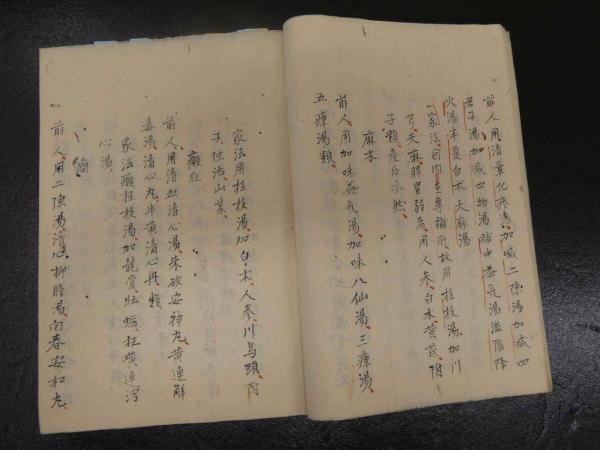 前人用清暈化痰湯加減二陳湯加減四
君子湯加減四物湯補中益氣湯滋陰降
火湯半夏白朮天麻湯
家法因內主專補肝故用桂枝湯加川
芎天麻脾胃弱者用人參白朮黄芪附
子類產后亦然
麻木
前人用加味益气湯加味八仙湯三痺湯
五痺湯類
家法用桂枝湯加白朮人參川烏頭附
子独活山菜
癲狂
前人用清血清心湯朱砂安神丸黄連解
毒湯清心丸牛黄清心丹類
家法癲桂枝湯加龍骨牡蛎狂黄連瀉
心湯
癇
前人用二陳湯清心抑胆湯向春安和丸